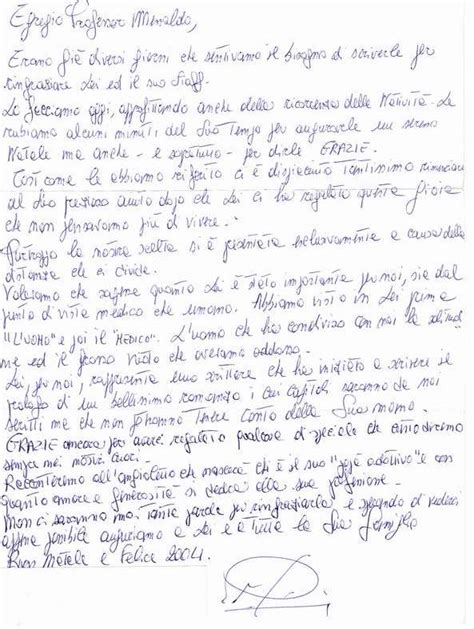 Egregio Professor Minaldo,
Erano già diversi giorni che sentivamo il bisogno di scriverle per
ringraziare Lei ed il suo Staff.
Lo facciamo oggi, approfittando anche della ricorrenza della Natività. Le
rubiamo alcuni minuti del Suo Tempo per augurarle un sereno
Natale ma anche - e soprattutto - per dirle GRAZIE.
Così come le abbiamo riferito ci è dispiaciuto tantissimo rinunciare
al Suo prezioso aiuto dopo che Lei ci ha regalato questa gioia
che non pensavamo più di vivere.
Purtroppo la nostra scelta si è esclusivamente a causa della
distanza che ci divide.
Voleramo che sapesse quanto Lei è stato importante per noi, sia dal
punto di vista medico che umano. Abbiamo visto in Lei prima
"L'UOMO" e poi il "MEDICO". L'uomo che ha condiviso con noi la
me ed il grosso che avevamo addosso.
Lei, per noi, rappresenta uno scrittore che ha iniziato a scrivere il
prologo di un bellissimo romanzo i cui capitoli saranno da noi
scritti ma che non potranno tenere conto della Sua mano.
GRAZIE ancora per averci regalato qualcosa di speciale che ameremo
senza
Racconteremo all'angioletto che nascerà chi è il suo e con
quanto amore e generosità si dedica alla sua professione.
Non ci saranno mai tante parole per ringraziarla e sperando di vederci
appena possibile auguriamo a Lei e a tutta la Sua famiglia
Buon Natale e Felice 2004.